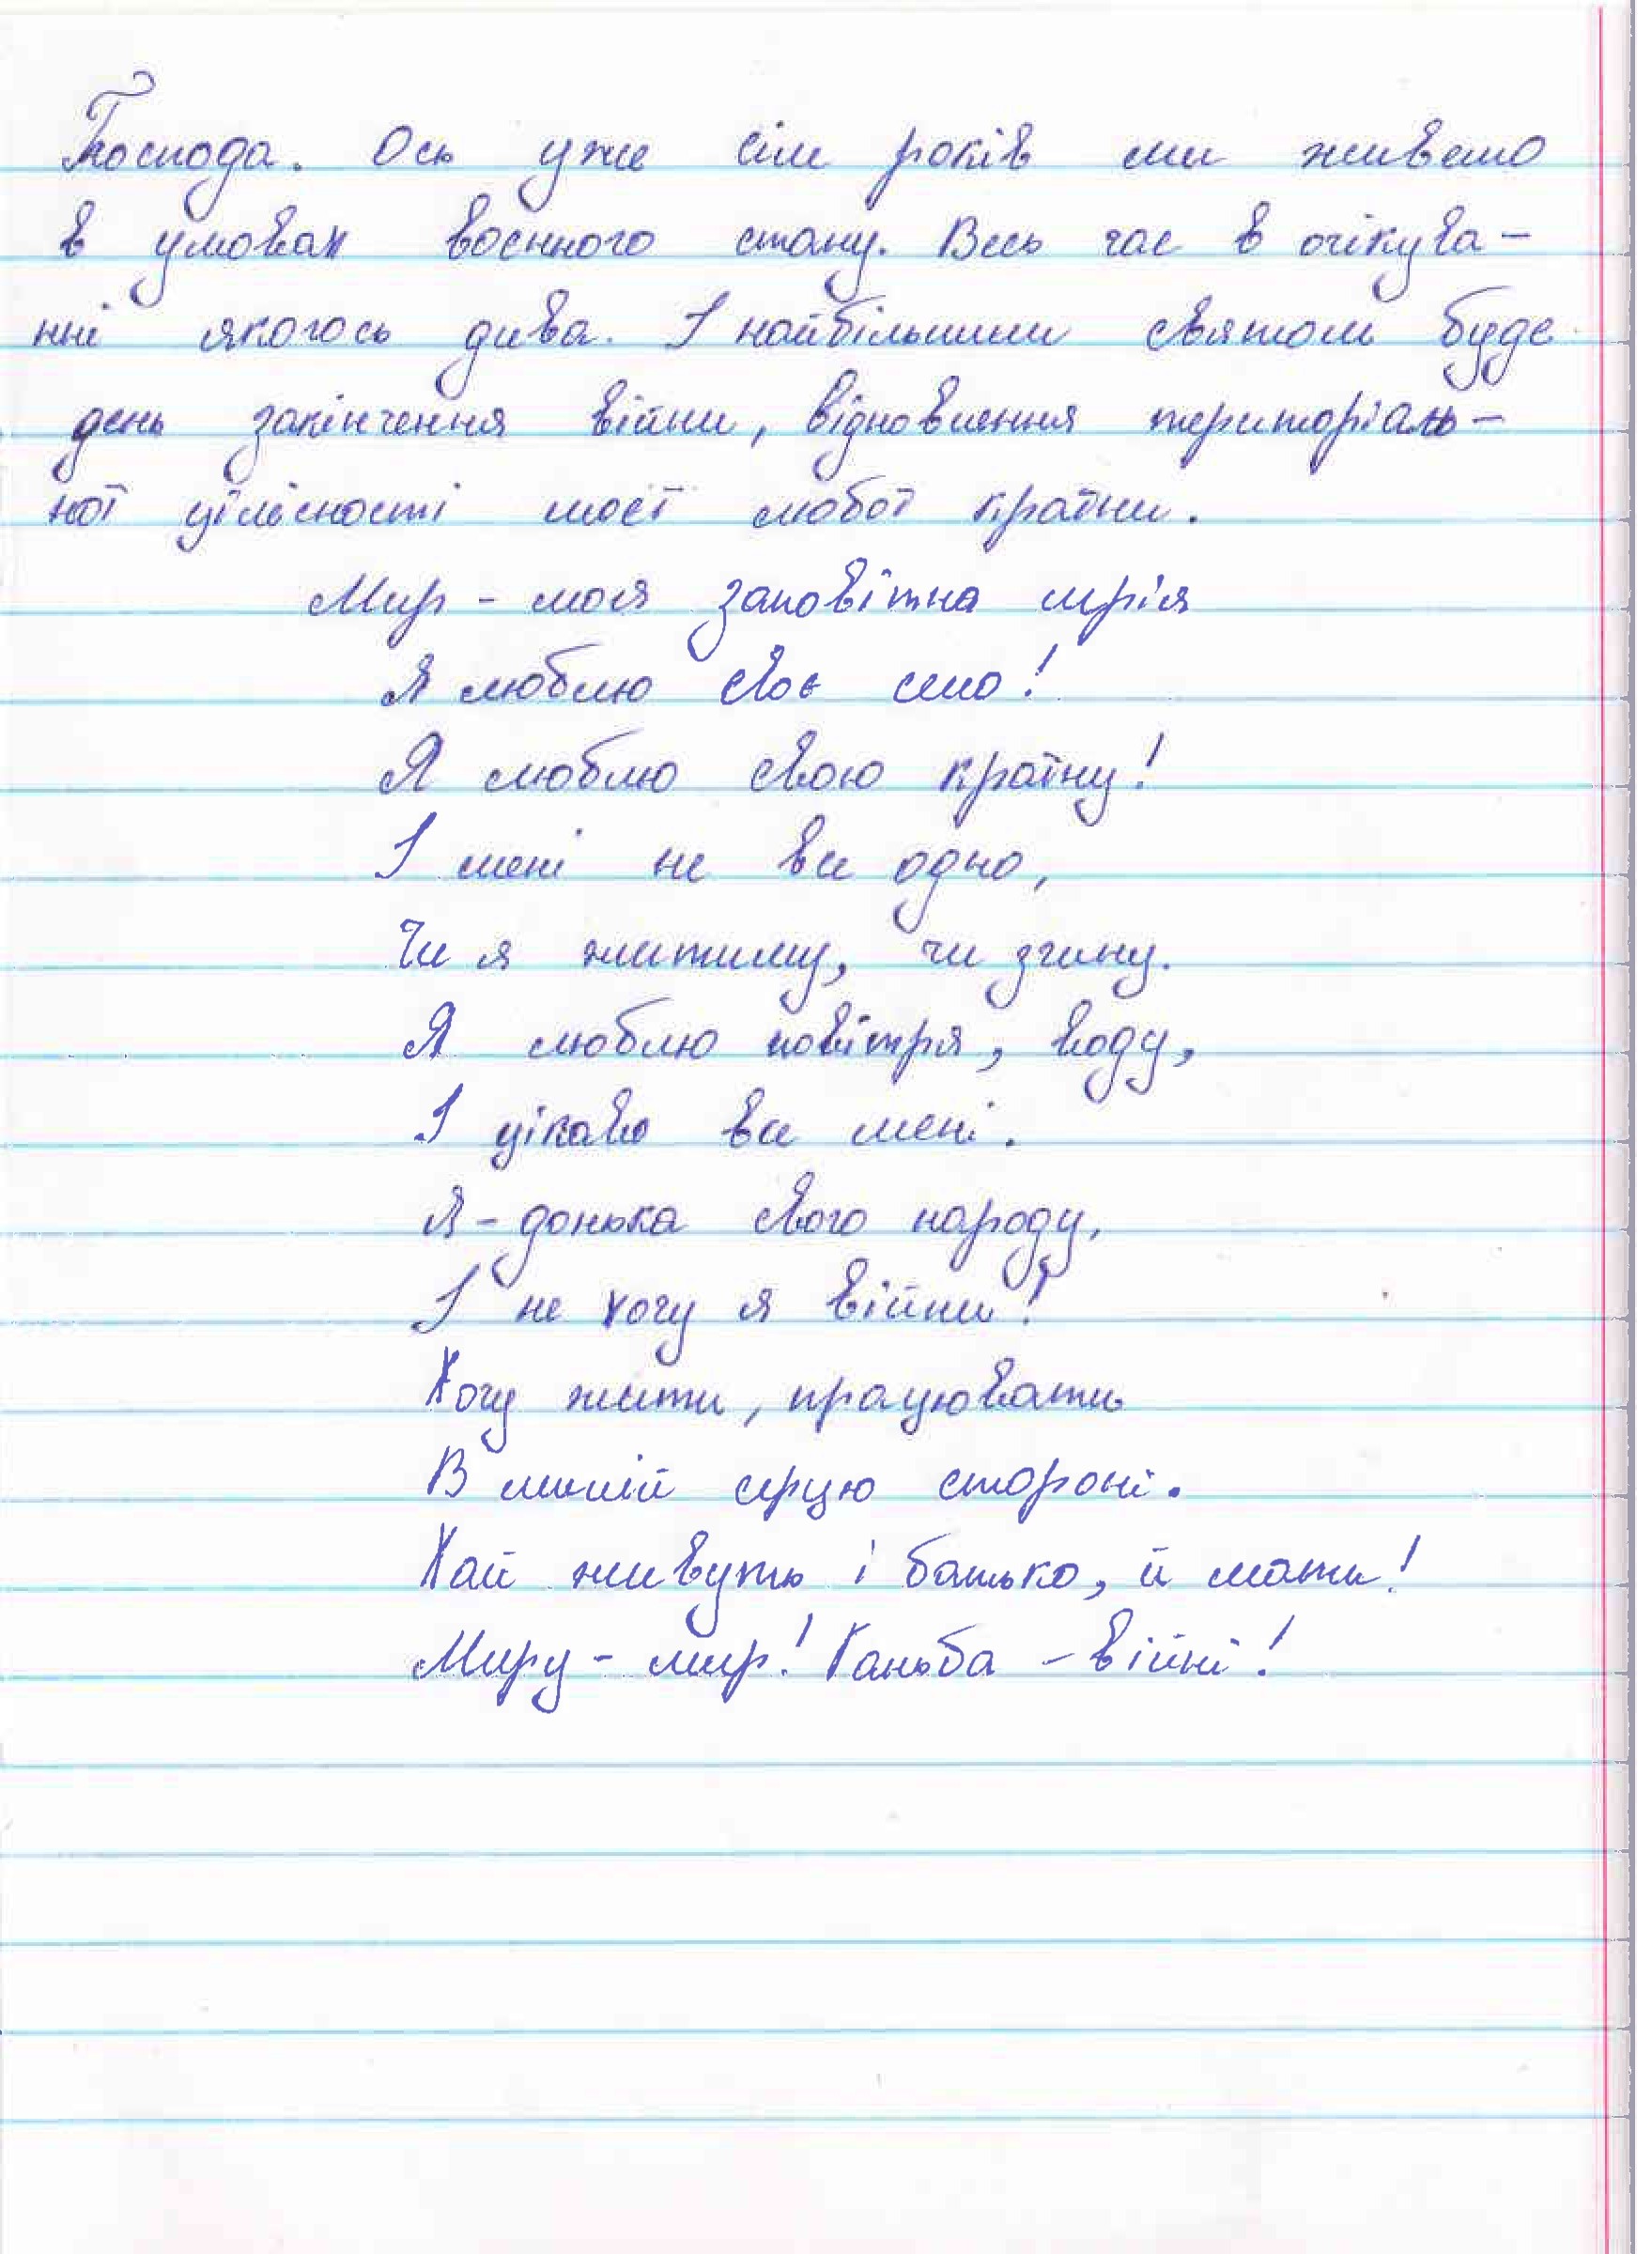 Господа. Ось уже сім років ми живемо
в умовах воєнного стану. Весь час в очікува-
нні якогось дива. І найбільшим святом буде
день закінчення війни, відновлення територіаль-
ної цілісності моєї любої країни.
Мир - моя заповітна мрія
Я люблю своє село!
Я люблю свою країну!
І мені не все одно,
Чи я житиму, чи згину.
Я люблю повітря, воду,
І цікаво все мені.
Я - донька свого народу,
І не хочу я війни!
Хочу жити, працювати
В милій серцю стороні.
Хай живуть і батько, й мати!
Миру - мир! Ганьба - війні!